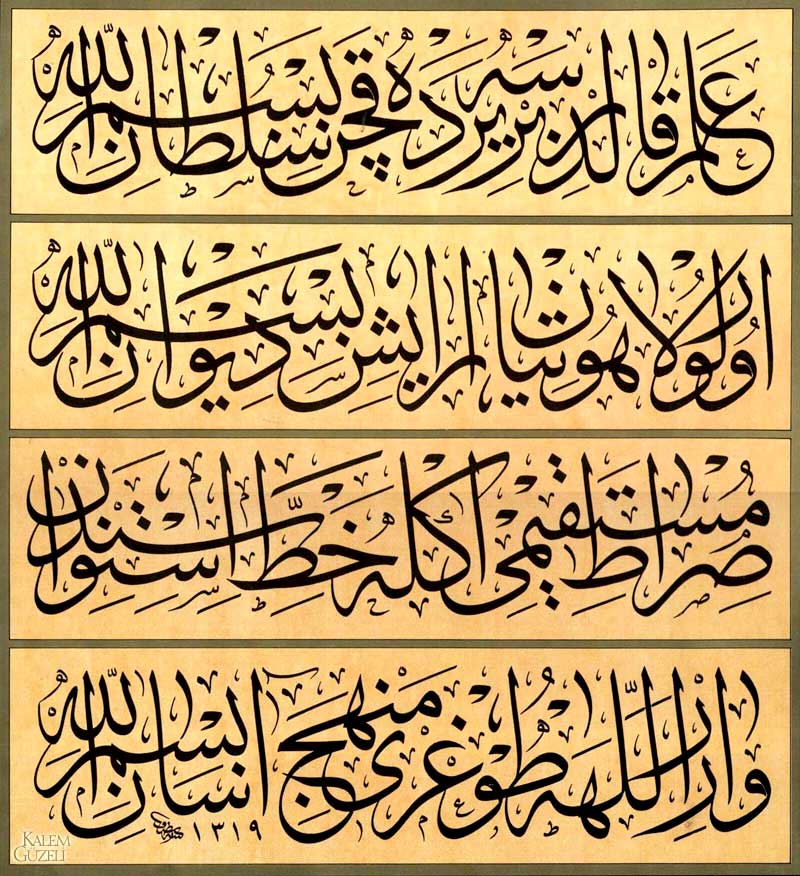 علم قالدرسه بر يرده قچن سلطان بسم الله
اولور لاهوتيانلر ايش ديوان بسم الله
صراط مستقيمى اكله خط استواسندن
وارر اللهه طوغرى منهج انسان بسم الله
١٣١٩
KALEM GÜZELİ